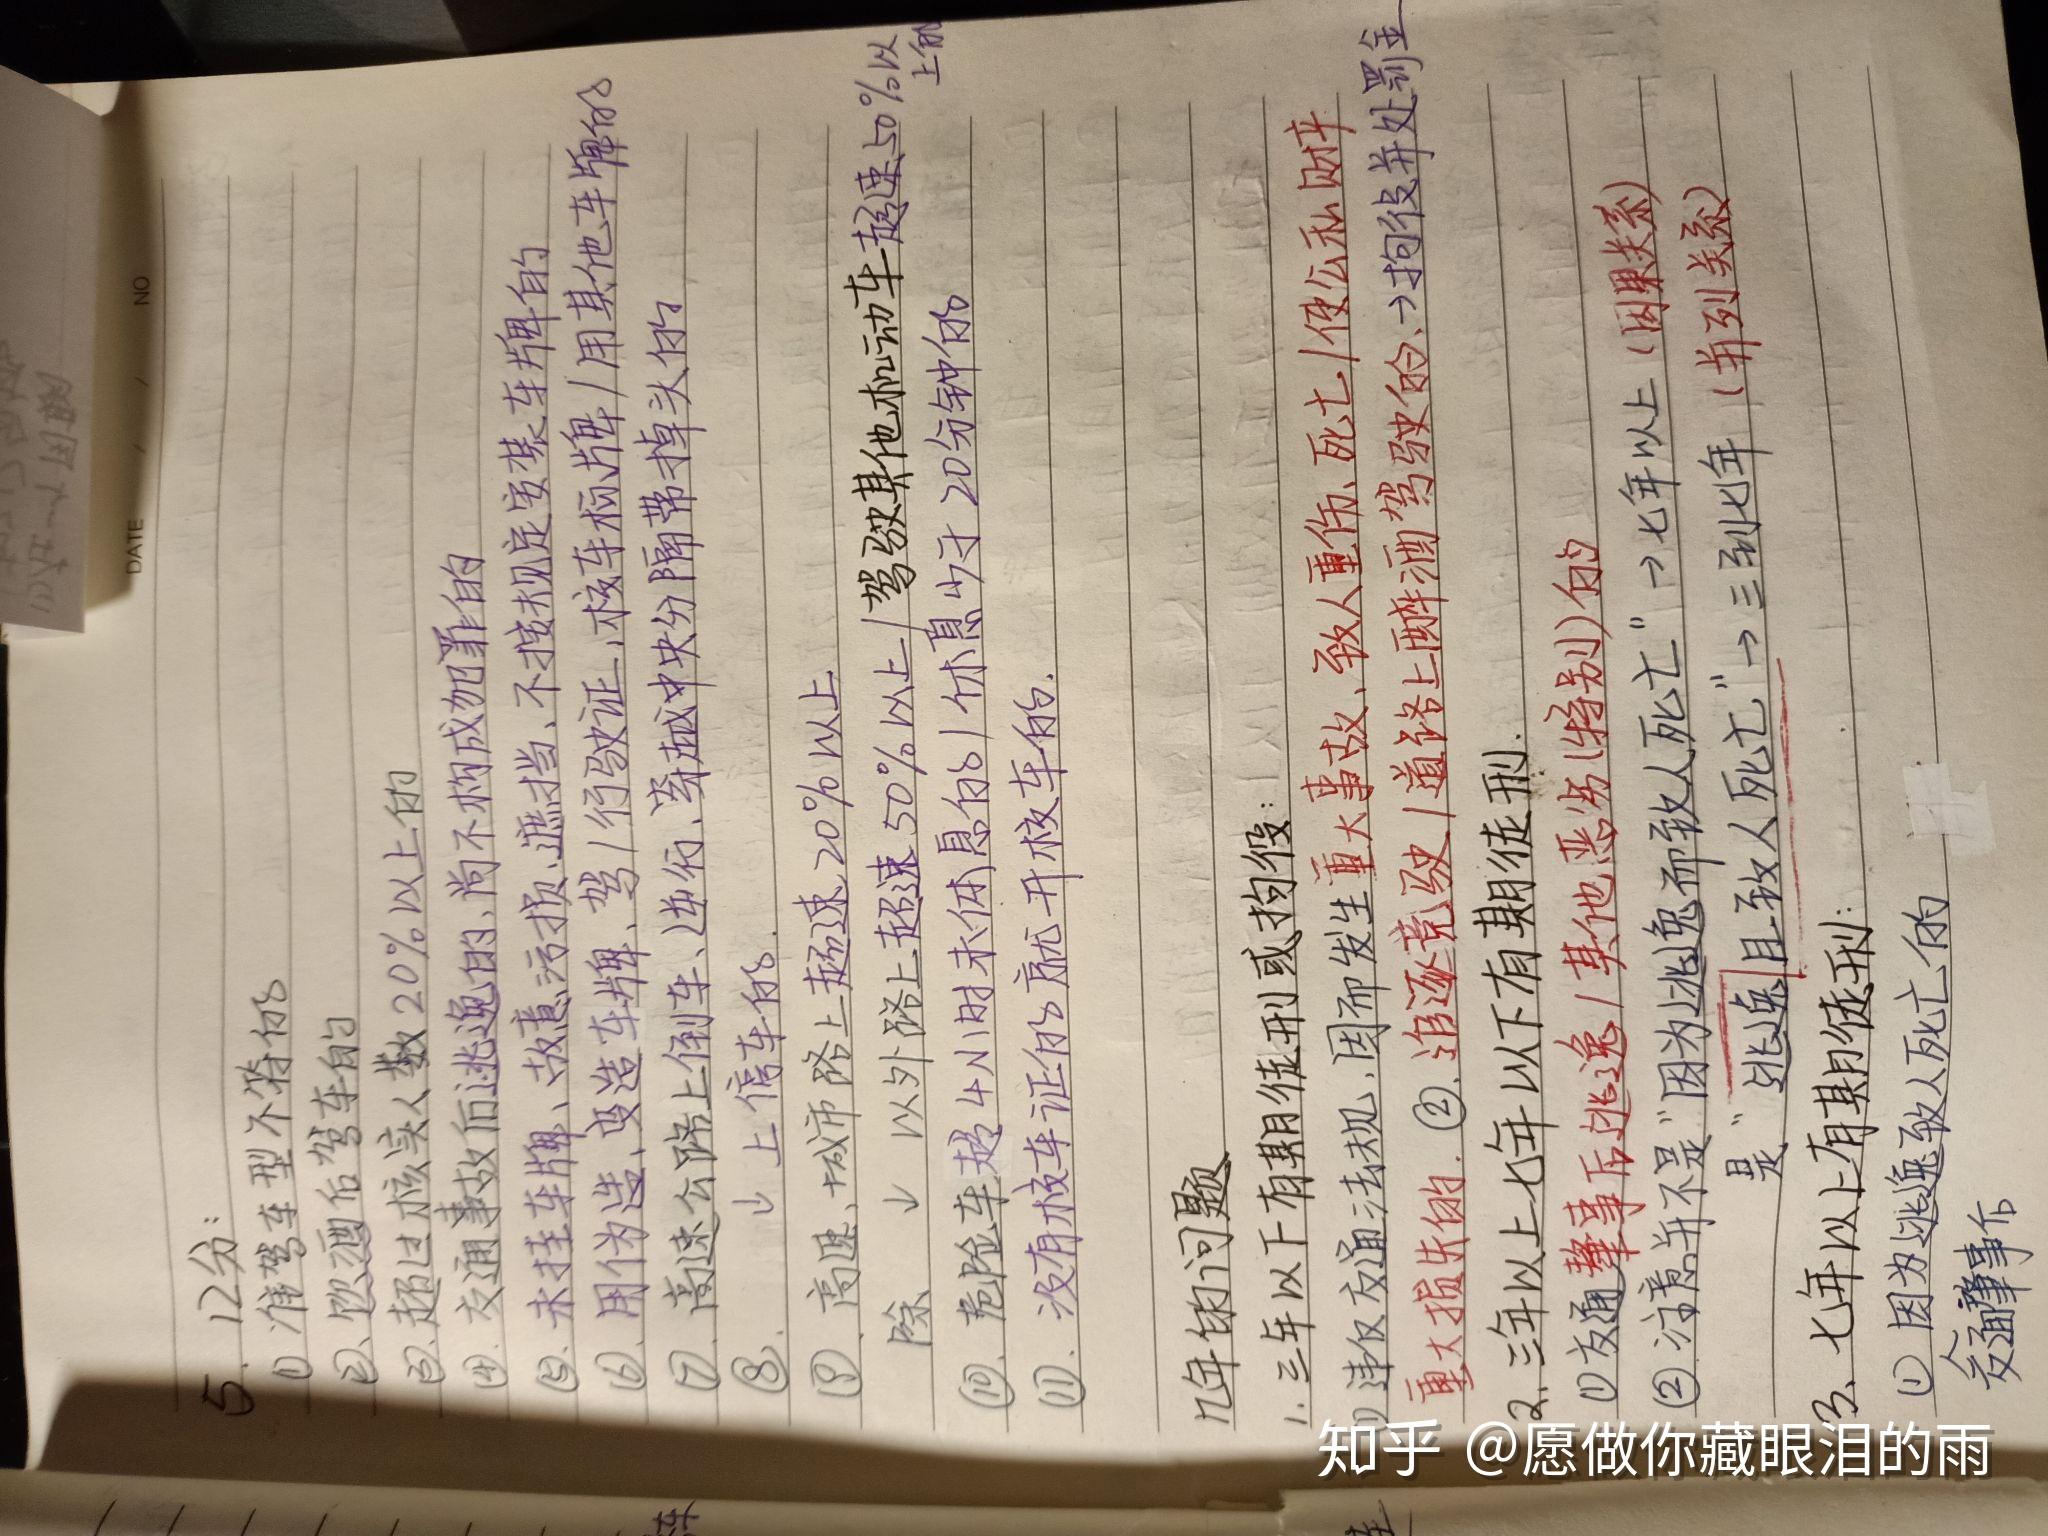 DATE / / NO
5、12分：
①准驾车型不符的
②、饮酒后驾车的
③、超过核载人数20%以上的
④、交通事故后逃逸的、尚不构成犯罪的
⑤、未挂车牌、故意污损、遮挡、不按规定安装车牌的
⑥、用伪造、变造车牌、驾/行驶证、校车标牌/用其他车牌的
⑦、高速公路上倒车、逆行、穿越中央分隔带掉头的
⑧、↓上停车的.
⑨、高速、城市路上超速20%以上
除↓以外路上超速50%以上/驾驶其他机动车超速50%以
上的
⑩、危险车超4小时未休息的/休息少于20分钟的
⑪、没有校车证的就开校车的.
几年的问题
1、三年以下有期徒刑或拘役：
①违反交通法规、因而发生重大事故、致人重伤、死亡/使公私财产
重大损失的. ②、追逐竞驶/道路上醉酒驾驶的、→拘役并处罚金
2、三年以上七年以下有期徒刑.
①交通肇事后逃逸/其他恶劣(特别)的
②注意并不是"因为逃逸而致人死亡"→七年以上(因果关系)
是"逃逸且致人死亡"→三到七年(并列关系)
3、七年以上有期徒刑：
①因为逃逸致人死亡的
交通肇事后
知乎 @愿做你藏眼泪的雨